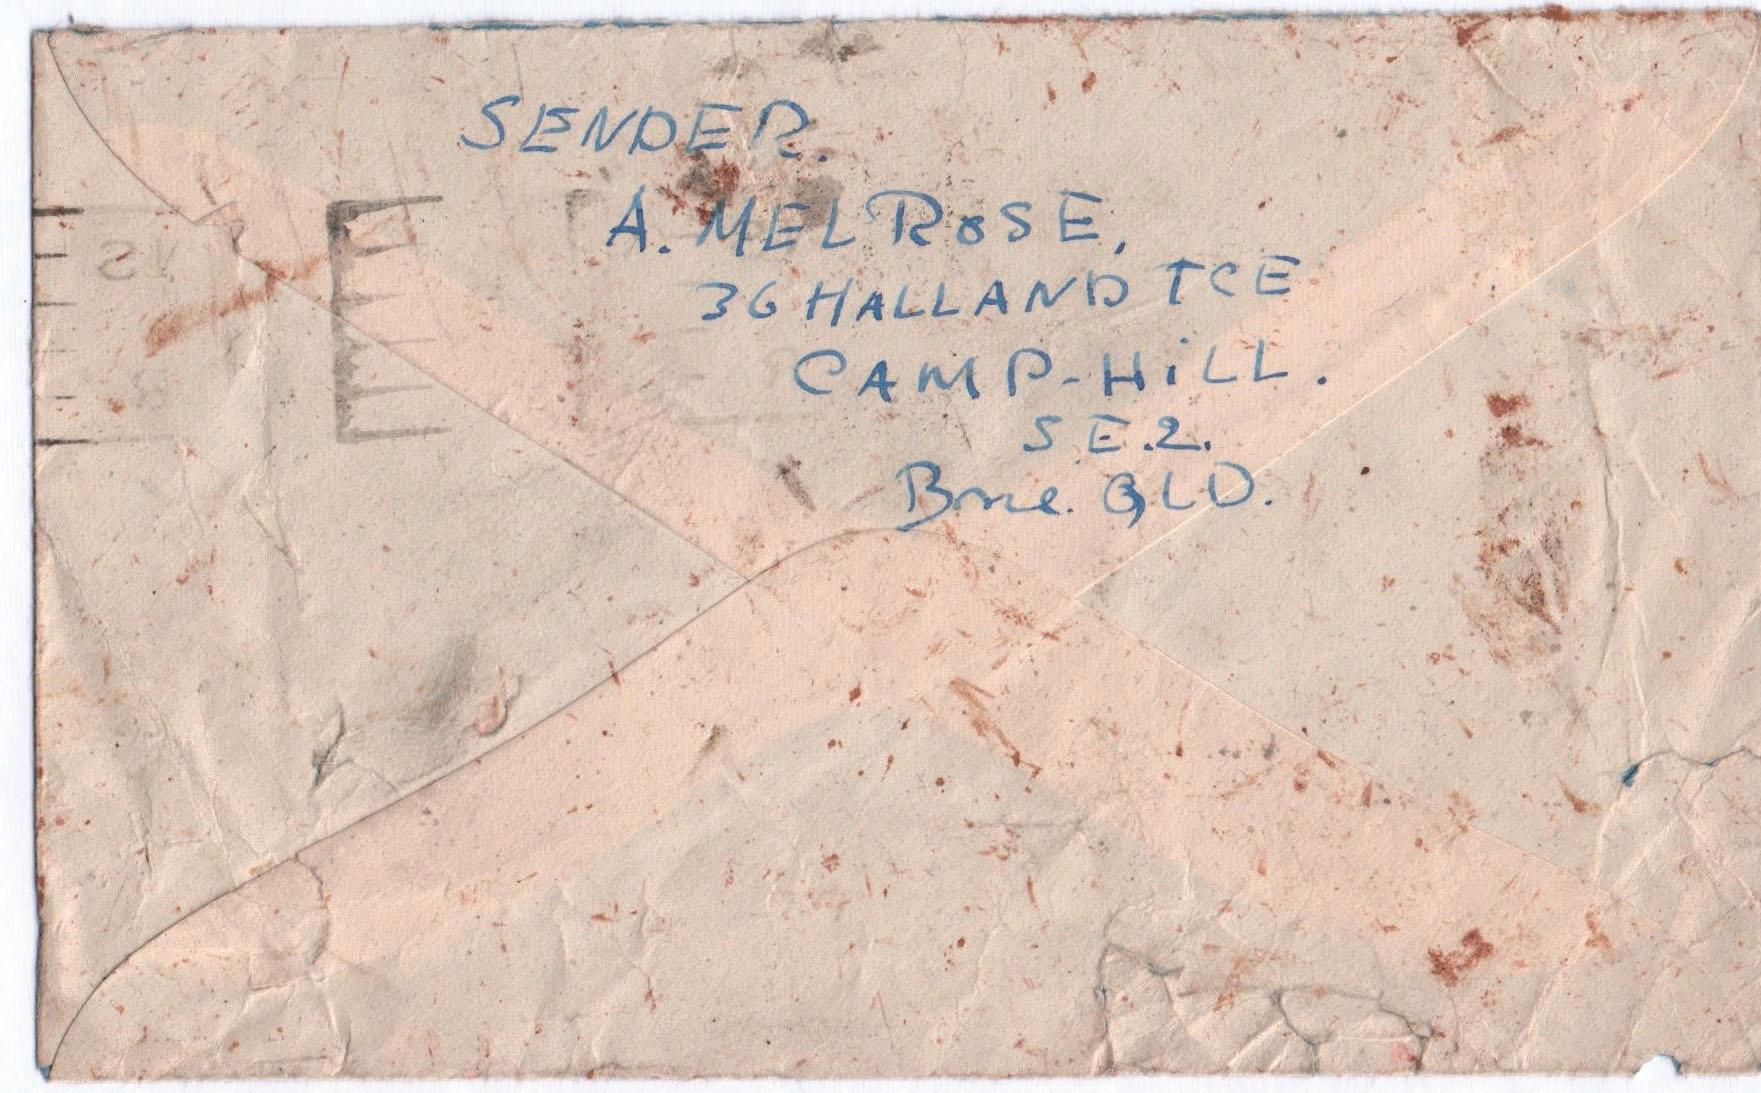 SENDER.
A. MELROSE,
36 HALLAND TCE
CAMP-HiLL.
S.E.2.
Bne. QLD.